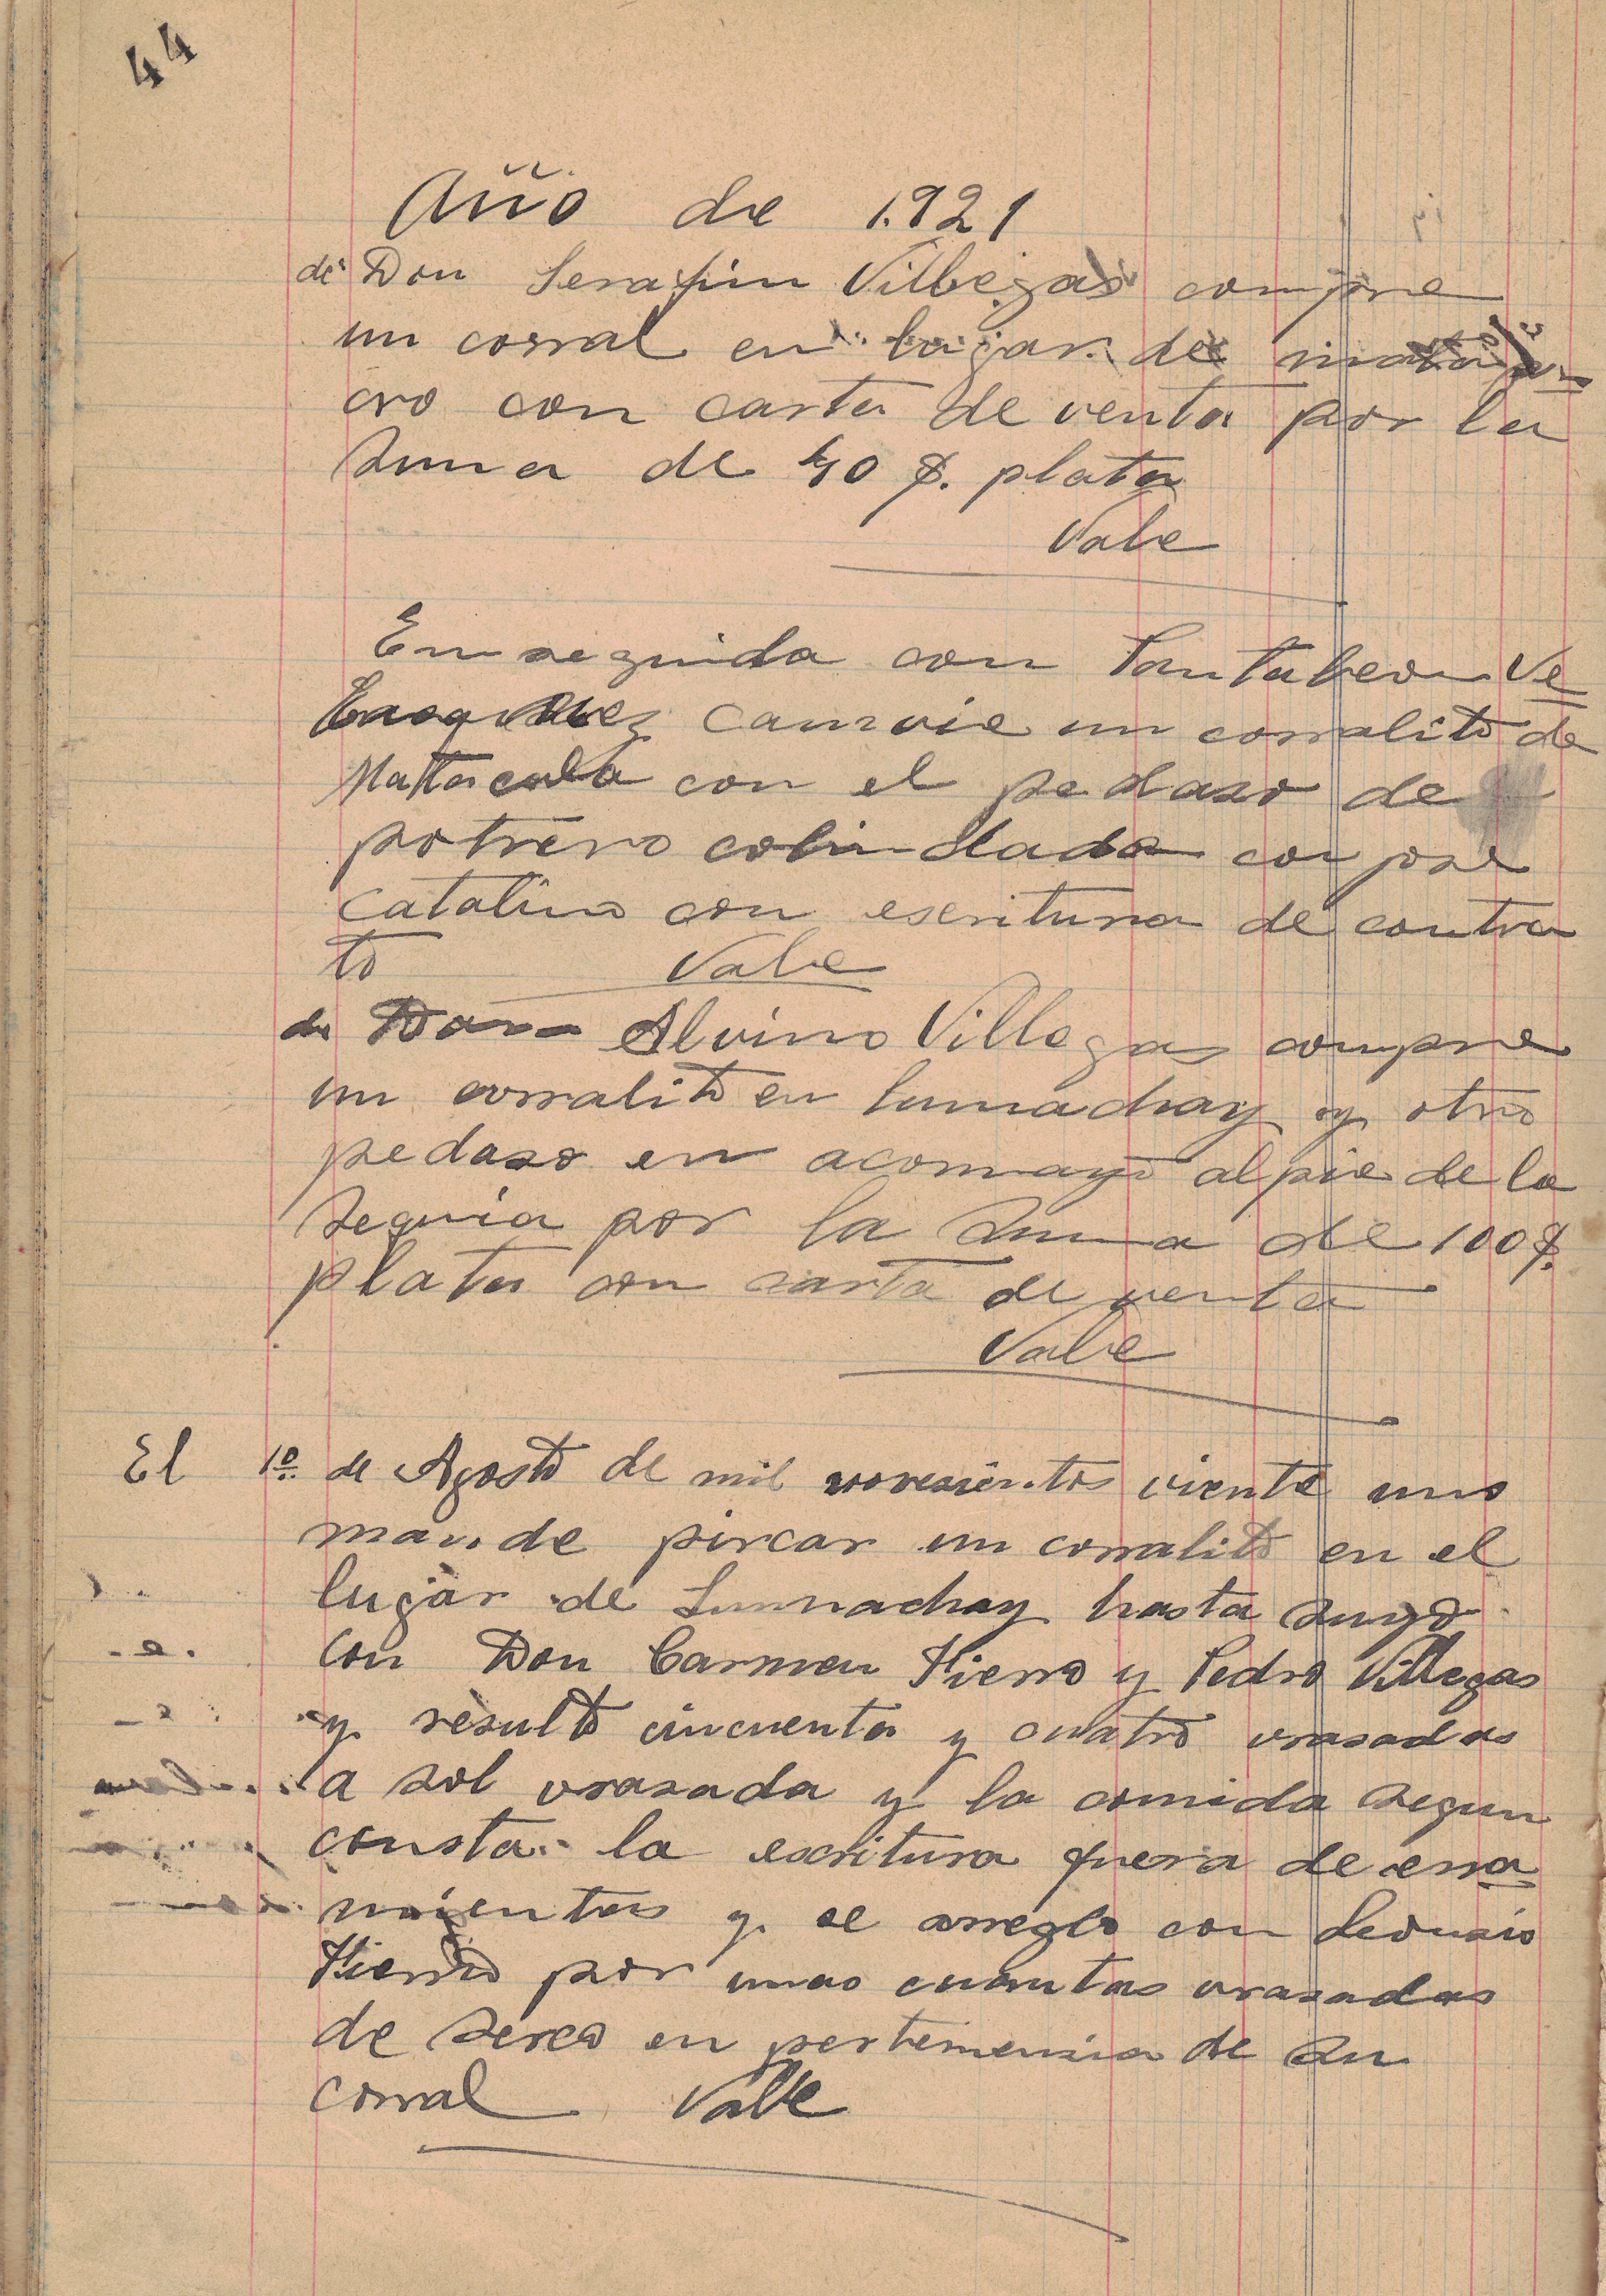 44
Año de 1.921
de Don Serafin Villegas compre
un corral en lugar de
cro con carta de venta por la
suma de 40 $. plata
Vale
Enseguida con Pantaleon Ve
camvie un corralito de
con el pedaso de
potrero colindada con jose
Catalino con escritura de contra
to Vale
de Don Alvino Villegas compre
un corralito en Lumachay y otro
pedaso en acomayo al pie de la
sequia por la suma de 100 $.
plata con carta de venta
Vale
El 1º. de Agosto de mil novesientos viente uno
mande pircar un corralito en el
lugar de Lumachay hasta suyo
con Don Carmen Fierro y Pedro Villegas
y resultó cincuenta y cuatro vrasadas
a sol vrasada y la comida segun
consta la escritura fuera de erra
mientas y se arreglo con Leonsio
Fierro por unas cuantas vrasadas
de serco en pertenensia de su
corral Valle